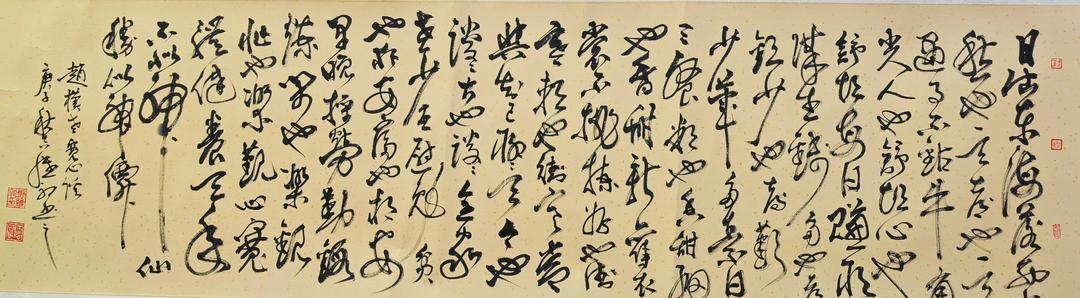 日出東海落西
愁也一天喜也一天
遇事不鑽牛角
尖人也舒坦心也
舒坦每日
錢多也喜
歡少也喜歡
少葷多素日
三餐粗也香甜細
也香甜新舊衣
裳不挑揀好也御
寒賴也御寒常
與知己聊天今也
談談古也談談全家
老少互慰勉貧
也相安富也相安
早晚操勞勤鍛
煉閒也樂觀
忙也樂觀心寬
體健養天年
不似神仙
勝似神仙
趙樸初寬心謠
庚子秋書之